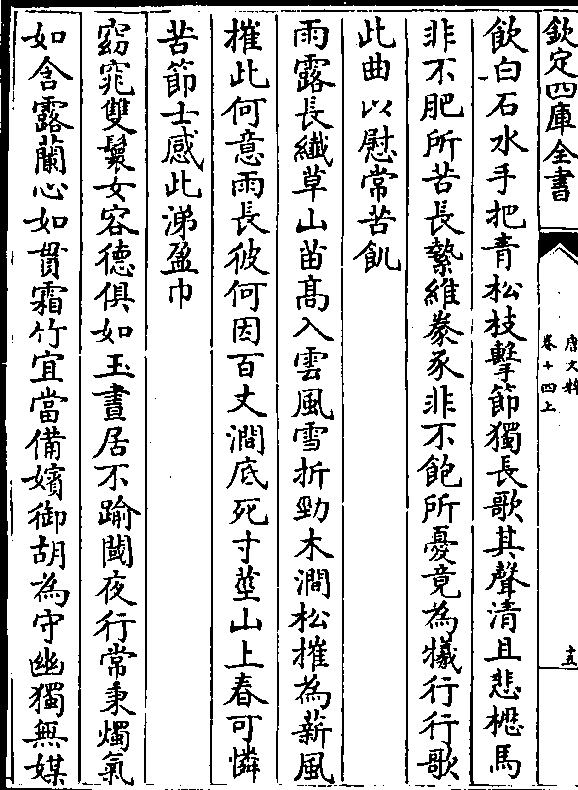 欽定四庫全書
唐文粹
卷十四上
十五
飲白石水手把青松枝擊節獨長歌其聲清且悲櫪馬
非不肥所苦長縶維豢豕非不飽所憂竟為犧行行歌
此曲以慰常苦飢
雨露長纖草山苗高入雲風雪折勁木澗松摧為薪風
摧此何意雨長彼何因百丈澗底死寸莖山上春可憐
苦節士感此涕盈巾
窈窕雙鬟女容德俱如玉晝居不踰閾夜行常秉燭氣
如含露蘭心如貫霜竹宜當備嬪御胡為守幽獨無媒